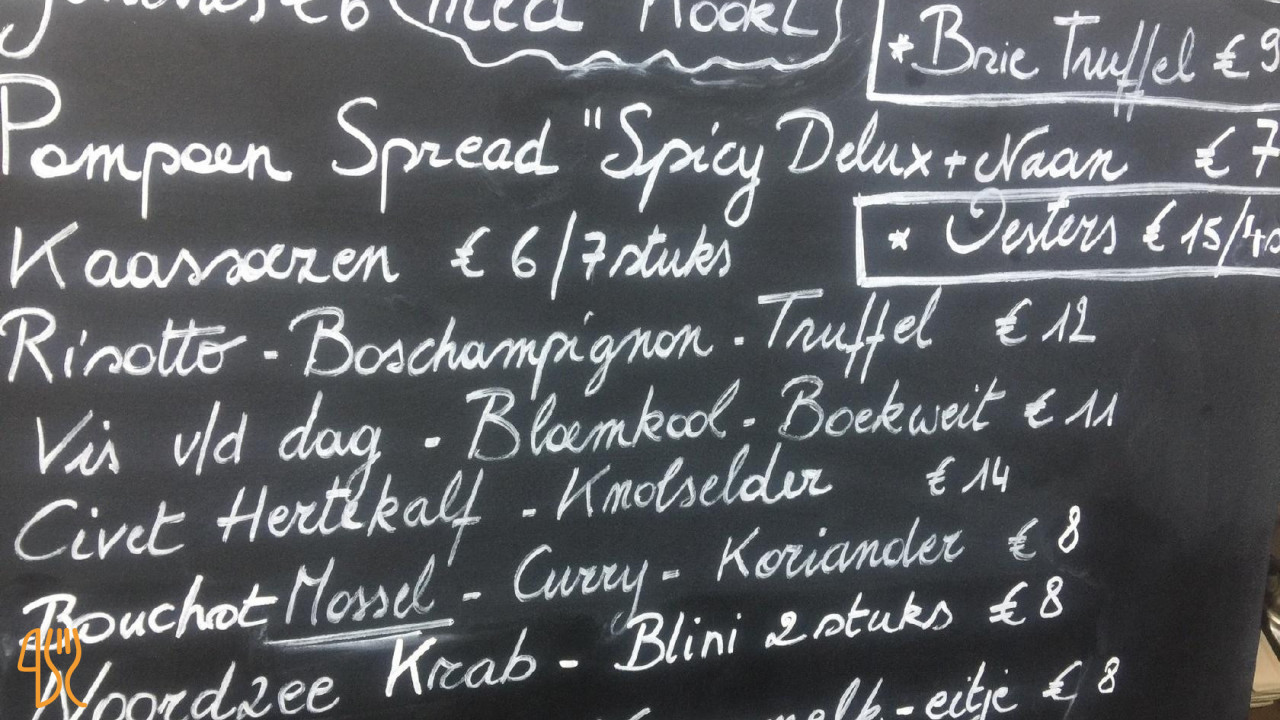 €6 med Rookt
* Brie Truffel € 9
Pompoen Spread "Spicy Delux + Naan € 7
Kaassoezen € 6/7 stuks
* Oesters € 15/4s
Risotto - Boschampignon - Truffel € 12
Vis v/d dag - Bloemkool - Boekweit € 11
Civet Hertekalf - Knolselder € 14
Bouchot Mossel - Curry - Koriander € 8
Noordzee Krab - Blini 2 stuks € 8
melk - eitje € 8